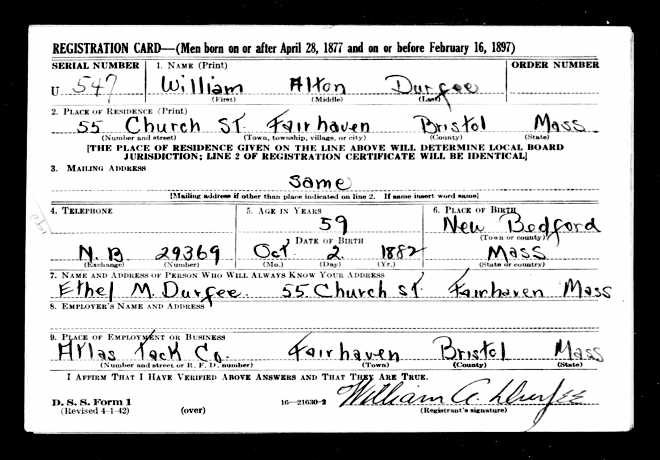 REGISTRATION CARD—(Men born on or after April 28, 1877 and on or before February 16, 1897)
SERIAL NUMBER 1. NAME (Print) ORDER NUMBER
U 547 William Alton Durfee
(First) (Middle) (Last)
2. PLACE OF RESIDENCE (Print)
55 Church St. Fairhaven Bristol Mass
(Number and street) (Town, township, village, or city) (County) (State)
[THE PLACE OF RESIDENCE GIVEN ON THE LINE ABOVE WILL DETERMINE LOCAL BOARD
JURISDICTION; LINE 2 OF REGISTRATION CERTIFICATE WILL BE IDENTICAL]
3. MAILING ADDRESS
Same
[Mailing address if other than place indicated on line 2. If same insert word same]
4. TELEPHONE 5. AGE IN YEARS 6. PLACE OF BIRTH
59 New Bedford
DATE OF BIRTH (Town or county)
N.B. 29369 Oct. 2 1882 Mass
(Exchange) (Number) (Mo.) (Day) (Yr.) (State or country)
7. NAME AND ADDRESS OF PERSON WHO WILL ALWAYS KNOW YOUR ADDRESS
Ethel M. Durfee 55 Church St. Fairhaven Mass
8. EMPLOYER'S NAME AND ADDRESS
9. PLACE OF EMPLOYMENT OR BUSINESS
Atlas Tack Co. Fairhaven Bristol Mass
(Number and street or R. F. D. number) (Town) (County) (State)
I AFFIRM THAT I HAVE VERIFIED ABOVE ANSWERS AND THAT THEY ARE TRUE.
D. S. S. Form 1
(Revised 4-1-42) (over) 16—21630-2 William A. Durfee
(Registrant's signature)